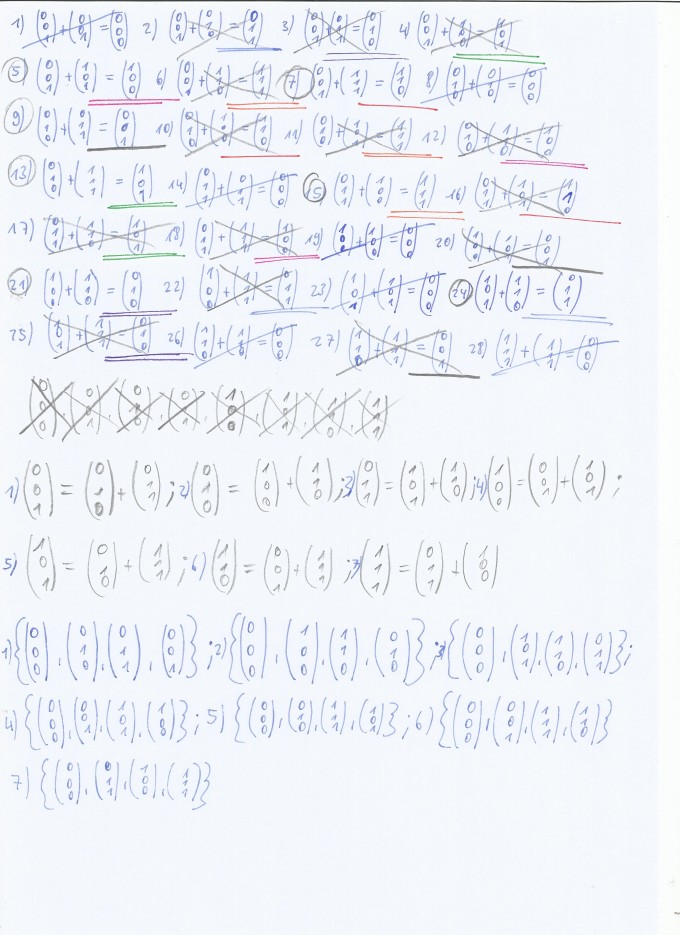 1) (0 0 1) + (0 0 1) = (0 0 0) 2) (0 0 1) + (0 1 0) = (0 1 1) 3) (0 0 1) + (0 1 1) = (0 1 0) 4) (0 0 1) + (1 0 0) = (1 0 1)
5) (0 0 1) + (1 0 1) = (1 0 0) 6) (0 0 1) + (1 1 0) = (1 1 1) 7) (0 0 1) + (1 1 1) = (1 1 0) 8) (0 1 0) + (0 1 0) = (0 0 0)
9) (0 1 0) + (0 1 1) = (0 0 1) 10) (0 1 0) + (1 0 0) = (1 1 0) 11) (0 1 0) + (1 0 1) = (1 1 1) 12) (0 1 0) + (1 1 0) = (1 0 0)
13) (0 1 0) + (1 1 1) = (1 0 1) 14) (0 1 1) + (0 1 1) = (0 0 0) 15) (0 1 1) + (1 0 0) = (1 1 1) 16) (0 1 1) + (1 0 1) = (1 1 0)
17) (0 1 1) + (1 1 0) = (1 0 1) 18) (0 1 1) + (1 1 1) = (1 0 0) 19) (1 0 0) + (1 0 0) = (0 0 0) 20) (1 0 0) + (1 0 1) = (0 0 1)
21) (1 0 0) + (1 1 0) = (0 1 0) 22) (1 0 0) + (1 1 1) = (0 1 1) 23) (1 0 1) + (1 0 1) = (0 0 0) 24) (1 0 1) + (1 1 0) = (0 1 1)
25) (1 0 1) + (1 1 1) = (0 1 0) 26) (1 1 0) + (1 1 0) = (0 0 0) 27) (1 1 0) + (1 1 1) = (0 0 1) 28) (1 1 1) + (1 1 1) = (0 0 0)
(0 0 0), (0 0 1), (0 1 0), (0 1 1), (1 0 0), (1 0 1), (1 1 0), (1 1 1)
1) (0 0 1) = (0 1 0) + (0 1 1) ; 2) (0 1 0) = (1 0 0) + (1 1 0) ; 3) (0 1 1) = (1 0 1) + (1 1 0) ; 4) (1 0 0) = (0 0 1) + (1 0 1) ;
5) (1 0 1) = (0 1 0) + (1 1 1) ; 6) (1 1 0) = (0 0 1) + (1 1 1) ; 7) (1 1 1) = (0 1 1) + (1 0 0)
1) {(0 0 0), (0 1 0), (0 1 1), (0 0 1)} ; 2) {(0 0 0), (1 0 0), (1 1 0), (0 1 0)} ; 3) {(0 0 0), (1 0 1), (1 1 0), (0 1 1)} ;
4) {(0 0 0), (0 0 1), (1 0 1), (1 0 0)} ; 5) {(0 0 0), (0 1 0), (1 1 1), (1 0 1)} ; 6) {(0 0 0), (0 0 1), (1 1 1), (1 1 0)}
7) {(0 0 0), (0 1 1), (1 0 0), (1 1 1)}